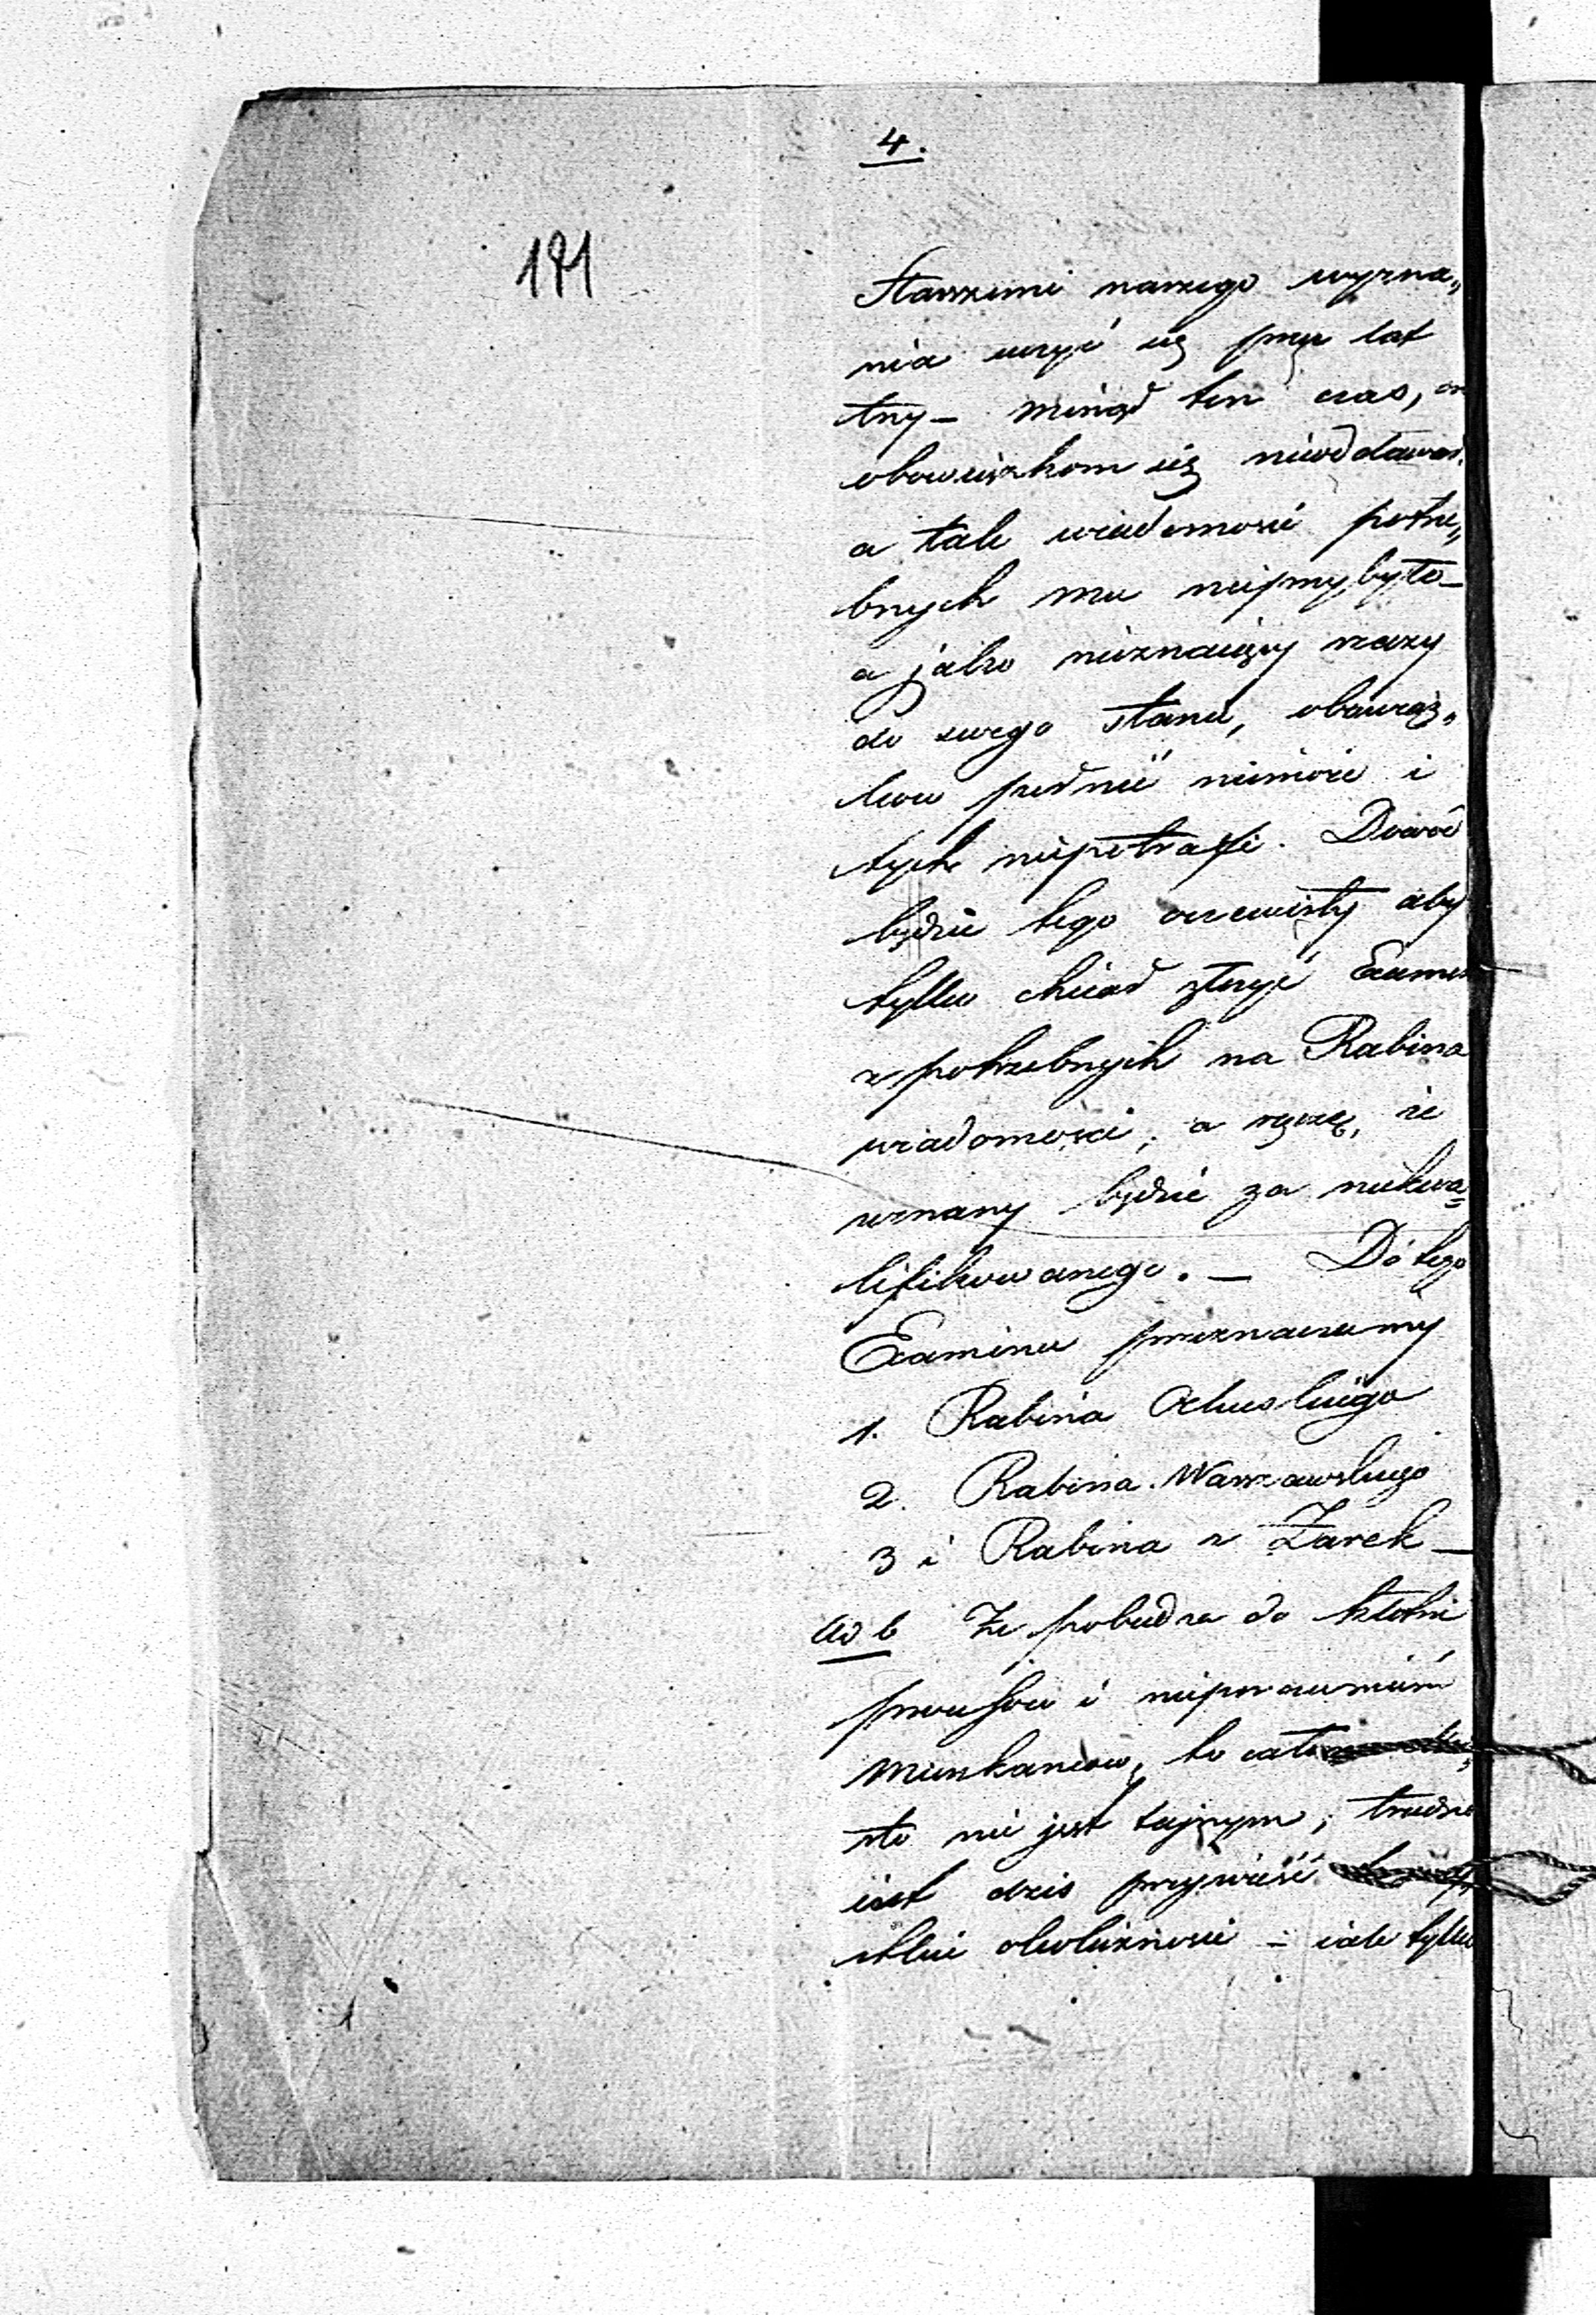 4.
191
Starszemi naszego wyzna„
nia uczyć się przez lat
trzy – minął ten czas, on
obowiązkom się nieoddawał
a tak wiadomości potrze„
bnych mu nieprzybyło –
a jako nieznaiący rzeczy
do swego stanu, obowiąz„
ków pełnić niemoże i
tych niepotrafi. Dowód
będzie tego oczewisty aby
tylko chciał złożyć Examen
z potrzebnych na Rabina
wiadomości, a ręczę, że
uznany będzie za niekwa=
lifikowanego. – Do tego
Examinu przeznaczamy
1. Rabina Olkuskiego
2. Rabina Warszawskiego
3 i Rabina z Żarek –
ad b Że pobudza do kłótni
processów i nieporozumień
Mieszkańców, to
sto nie jest tajnym; trudno
iest dzis przywieść
stkie okoliczności – iak tylko